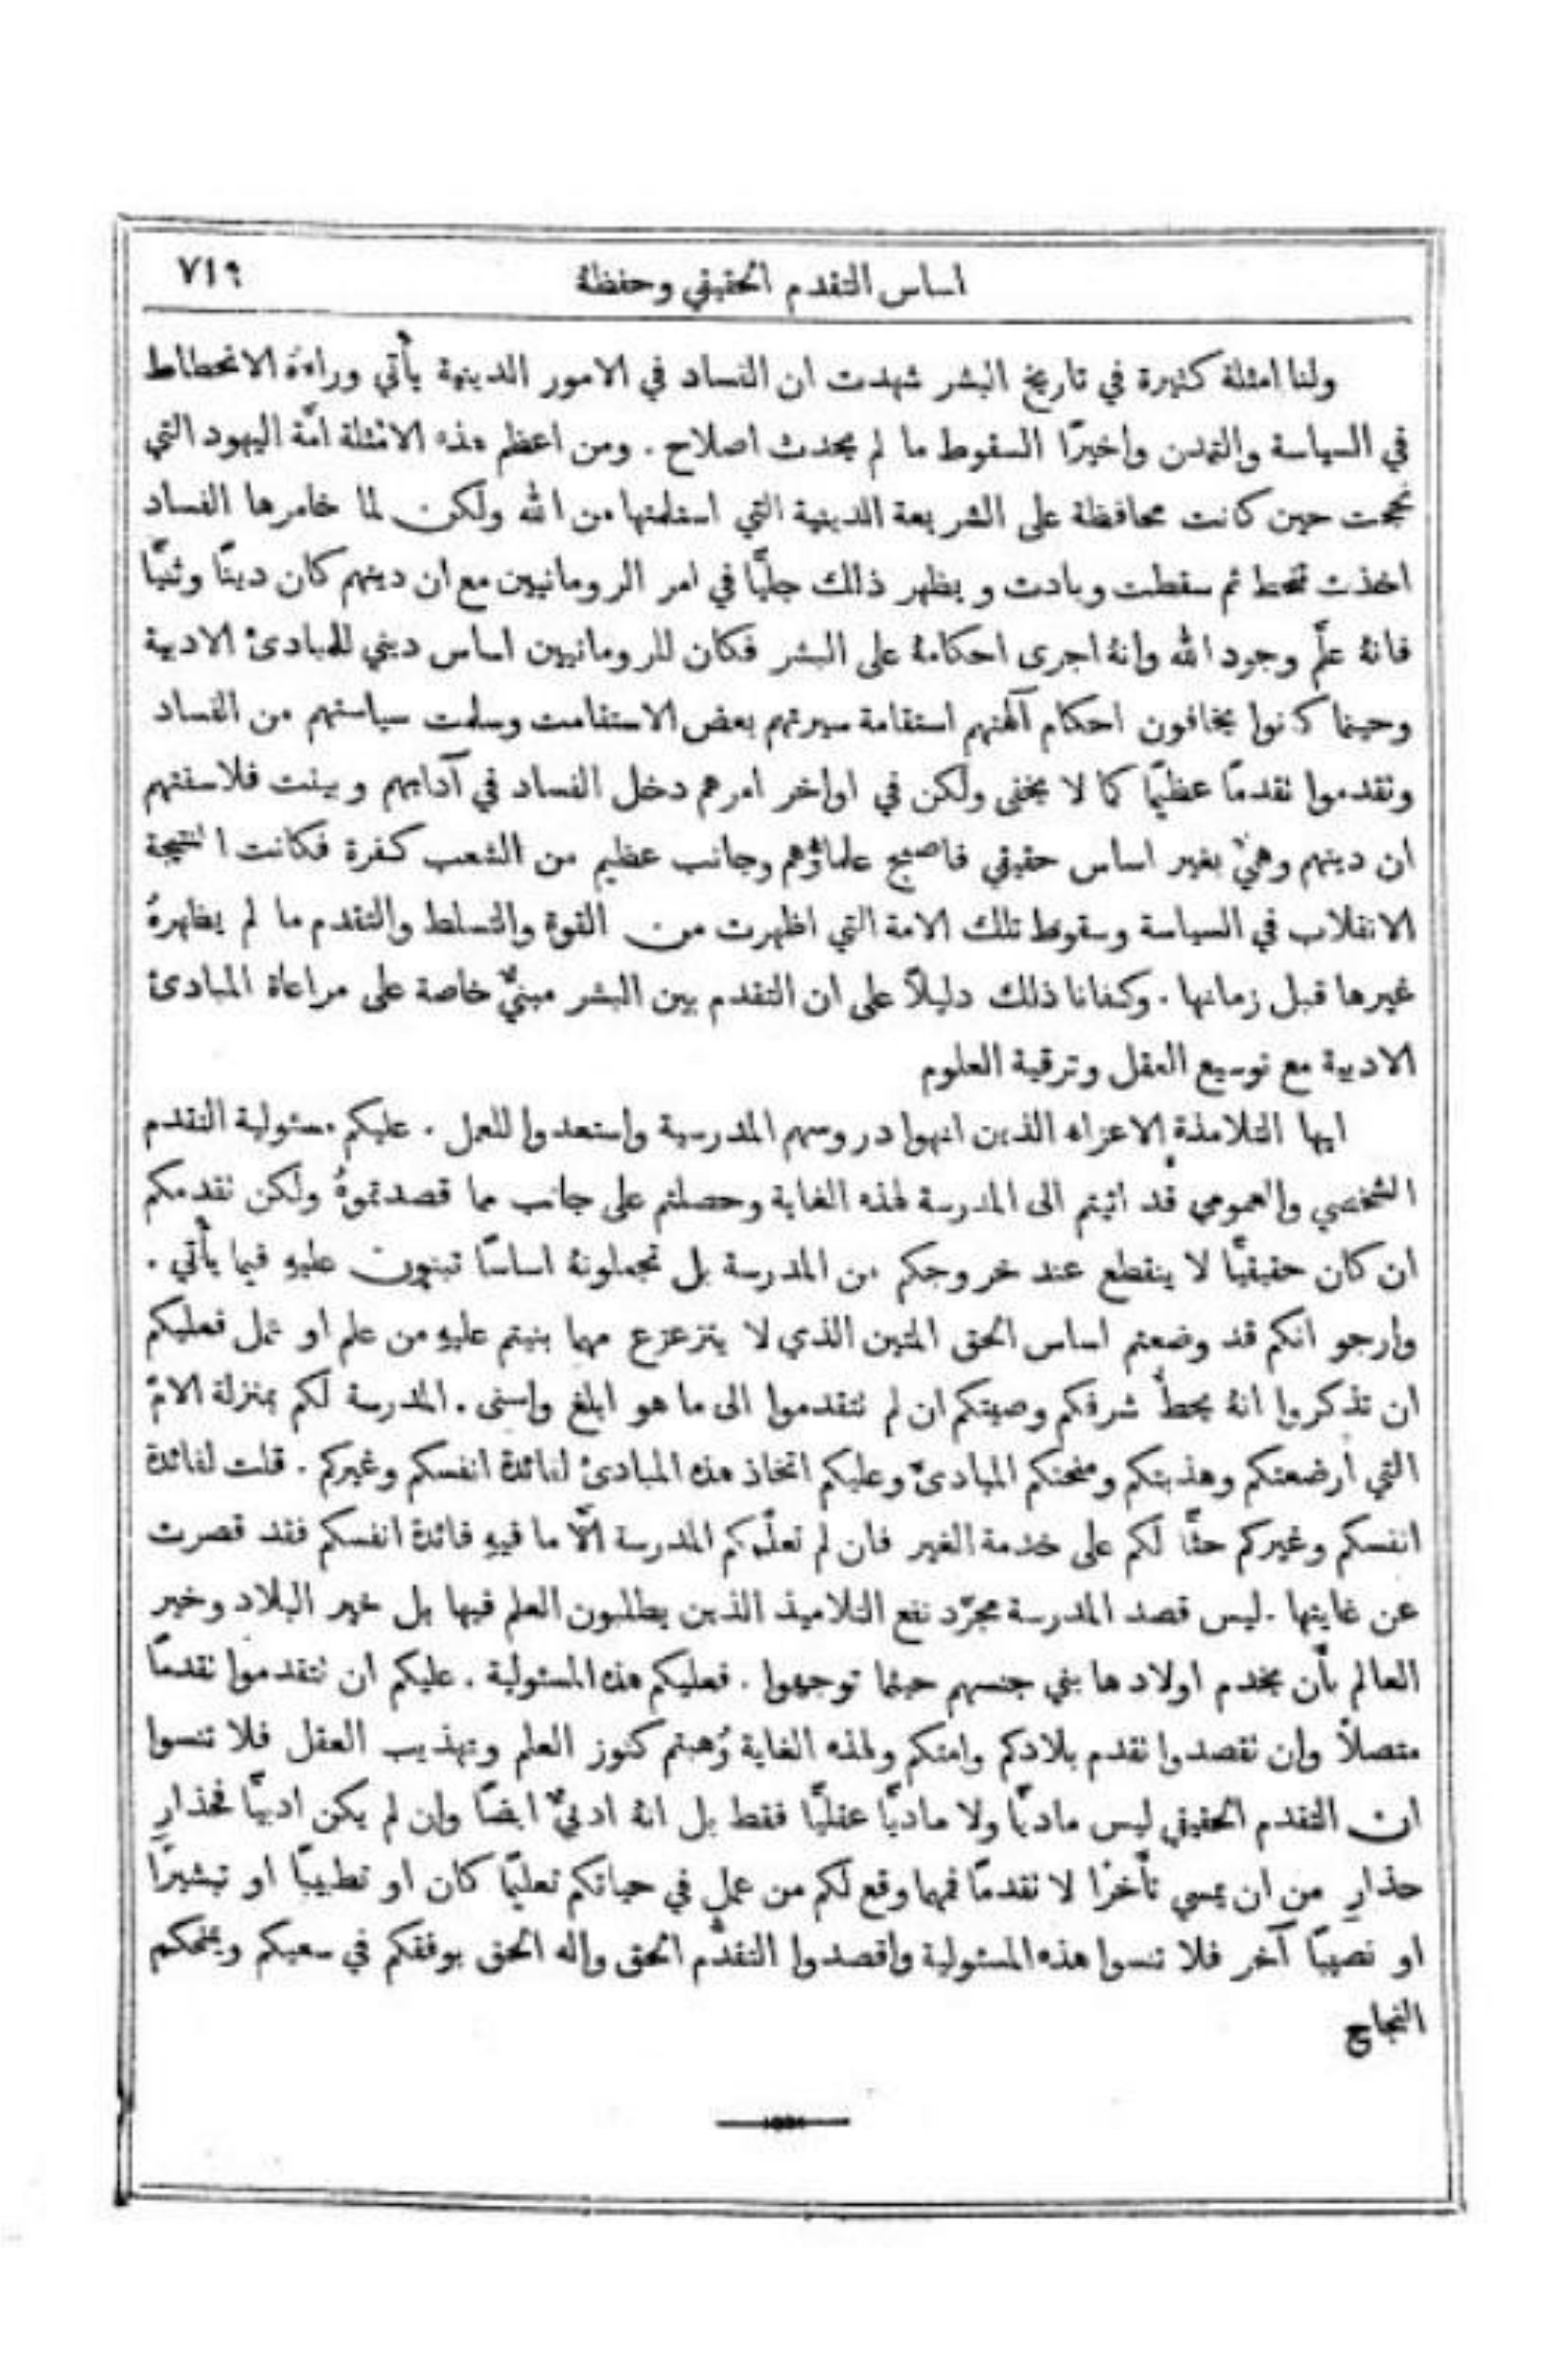 اساس التقدم الحقيقي وحفظهُ
٧١٩
ولنا امثلة كثيرة في تاريخ البشر شهدت ان الفساد في الامور الدينية يأتي وراءهُ الانحطاط
في السياسة والتمدن واخيرًا السقوط ما لم يحدث اصلاح . ومن اعظم هذه الامثلة امَّة اليهود التي
نجحت حين كانت محافظة على الشريعة الدينية التي استلمتها من الله ولكن لما خامرها الفساد
اخذت تنحط ثم سقطت وبادت ويظهر ذلك جليًّا في امر الرومانيين مع ان دينهم كان دينًا وثنيًّا
فانهُ علَّم وجود الله وانهُ اجرى احكامهُ على البشر فكان للرومانيين اساس ديني للمبادئ الادبية
وحينما كانوا يخافون احكام آلهتهم استقامة سيرتهم بعض الاستقامت وسلمت سياستهم من الفساد
وتقدموا تقدمًا عظيمًا كما لا يخفى ولكن في اواخر امرهم دخل الفساد في آدابهم وبينت فلاسفتهم
ان دينهم وهميٌّ بغير اساس حقيقي فاصبح علماؤهم وجانب عظيم من الشعب كفرة فكانت النتيجة
الانقلاب في السياسة وسقوط تلك الامة التي اظهرت من القوة والتسلط والتقدم ما لم يظهرهُ
غيرها قبل زمانها . وكفانا ذلك دليلاً على ان التقدم بين البشر مبنيٌّ خاصة على مراعاة المبادئ
الادبية مع توسيع العقل وترقية العلوم
ايها التلامذة الاعزاء الذين انهوا دروسهم المدرسية واستعدوا للعمل . عليكم مسئولية التقدم
الشخصي والعمومي قد اتيتم الى المدرسة لهذه الغاية وحصلتم على جانب مما قصدتموهُ ولكن تقدمكم
ان كان حقيقيًّا لا ينقطع عند خروجكم من المدرسة بل تجعلونهُ اساسًا تبنون عليهِ فيما يأتي .
وارجو انكم قد وضعتم اساس الحق المتين الذي لا يتزعزع مهما بنيتم عليهِ من علم او عمل فعليكم
ان تذكروا انهُ يحطُّ شرفكم وصيتكم ان لم تتقدموا الى ما هو ابلغ واسنى . المدرسة لكم بمنزلة الامّ
التي ارضعتكم وهذبتكم ومنحتكم المبادئ وعليكم اتخاذ هذه المبادئ لفائدة انفسكم وغيركم . قلت لفائدة
انفسكم وغيركم حثًّا لكم على خدمة الغير فان لم تعلّمكم المدرسة الَّا ما فيهِ فائدة انفسكم فقد قصرت
عن غايتها . ليس قصد المدرسة مجرّد نفع التلاميذ الذين يطلبون العلم فيها بل خير البلاد وخير
العالم بأن يخدم اولادها بني جنسهم حيثما توجهوا . فعليكم هذه المسئولية . عليكم ان تتقدموا تقدمًا
متصلاً وان تقصدوا تقدم بلادكم وامتكم ولهذه الغاية وُهبتم كنوز العلم وتهذيب العقل فلا تنسوا
ان التقدم الحقيقي ليس ماديًّا ولا ماديًّا عقليًّا فقط بل انهُ ادبيٌّ ايضًا وان لم يكن ادبيًّا فحذارِ
حذارِ من ان يمسي تأخرًا لا تقدمًا فمهما وقع لكم من عملٍ في حياتكم تعليمًا كان او تطبيبًا او تبشيرًا
او نصيبًا آخر فلا تنسوا هذه المسئولية واقصدوا التقدُّم الحق واله الحق يوفقكم في سعيكم ويمنحكم
النجاح